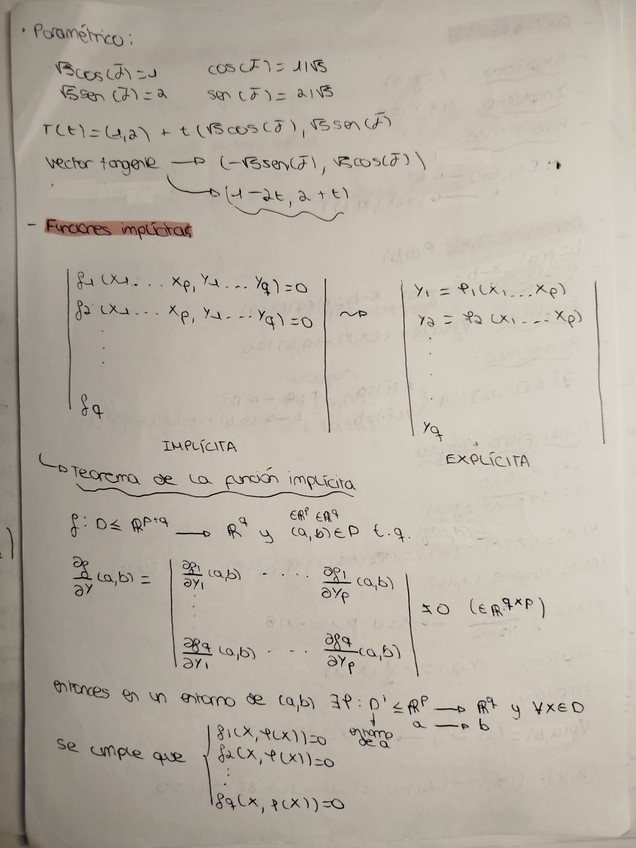 · Paramétrico:
√5cos(t̄)=1 cos(t̄)=1/√5
√5sen(t̄)=2 sen(t̄)=2/√5
r(t)=(1,2) + t(√5cos(t̄), √5sen(t̄)
vector tangente → (-√5sen(t̄), √5cos(t̄))
↳ (1-2t, 2+t)
- Funciones implícitas
f1(x1... xp, y1... yq)=0 ⇝ y1 = φ1(x1...xp)
f2(x1... xp, y1... yq)=0 y2 = φ2(x1...xp)
⋮ ⋮
fq yq
IMPLÍCITA EXPLÍCITA
↳ Teorema de la función implícita
∈ℝ^p ∈ℝ^q
f: D≤ ℝ^p+q → ℝ^q y (a,b)∈D t.q.
∂f/∂y (a,b) = | ∂f1/∂y1 (a,b) ... ∂f1/∂yp (a,b)
⋮ | ≠0 (∈ℝ^q×p)
∂fq/∂y1 (a,b) ... ∂fq/∂yp (a,b) |
entonces en un entorno de (a,b) ∃φ: D' ≤ ℝ^p → ℝ^q y ∀x∈D
entorno de a a → b
se cumple que { f1(x, φ(x))=0
f2(x, φ(x))=0
⋮
fq(x, φ(x))=0